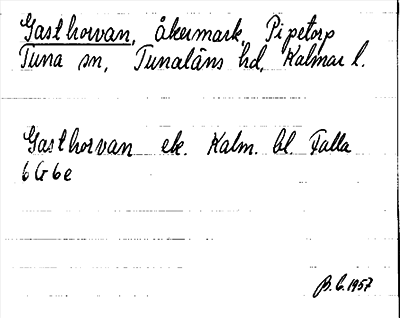 Gasthorvan, åkermark, Pipetorp
Tuna sn, Tunaläns hd, Kalmar l.
Gasthorvan ek. Kalm. bl. Falla
6G6e
B.C. 1957